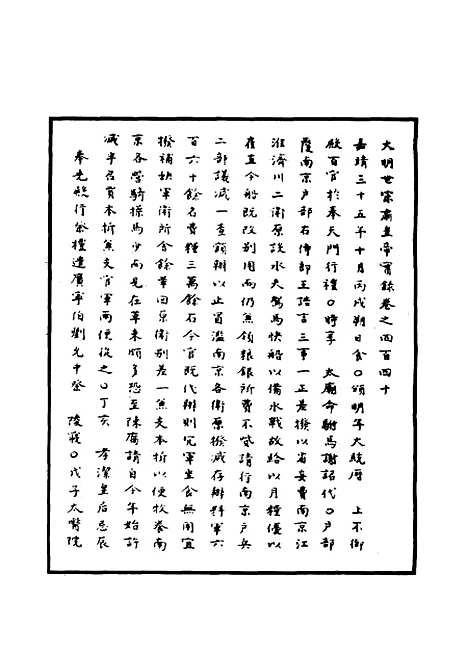 大明世宗肅皇帝實錄卷之四百四十
嘉靖三十五年十月丙戌朔日食○頒明年大統曆　上不御
殿百官於奉天門行禮○時享　太廟命駙馬謝詔代○戶部
覆南京戶部右侍郎王誥言三事一正差撥以省妄費南京江
淮濟川二衛原設水夫駕馬快船以備水戰故給以月糧優以
雇直今船既改別用而仍羔領糧銀所費不貲請行南京戶兵
二部議減一查額辦以止冒濫南京各衛原撥減存辦料軍六
百六十餘名費糧三萬餘石今官既代辦則冗軍坐食無用宜
撥補缺軍衛所舍餘革回原衛別差一兼支本折以便牧養南
京各營騎操馬少而見在草束頗多恐至陳腐請自今年始許
減半召買本折兼支官軍兩便從之○丁亥　孝潔皇后忌辰
奉先殿行祭禮遣廣寧伯劉允中祭　陵寢○戊子太醫院